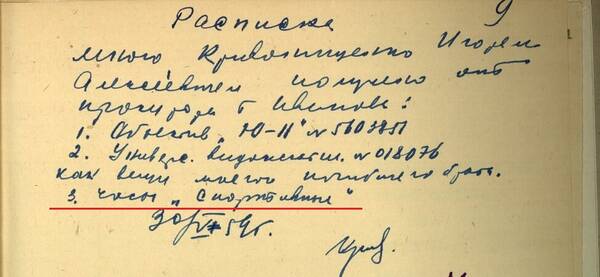 9
Расписка
Мною Кривонищенко Игорем
Алексеевичем получено от
прокурора т Иванова:
1. Объектив „Ю-11" № 5603851
2. Универс. видоискател. № 018076
как вещи моего погибшего брата.
3. часы „Спортивные"
30/VI 59г.
Крив.